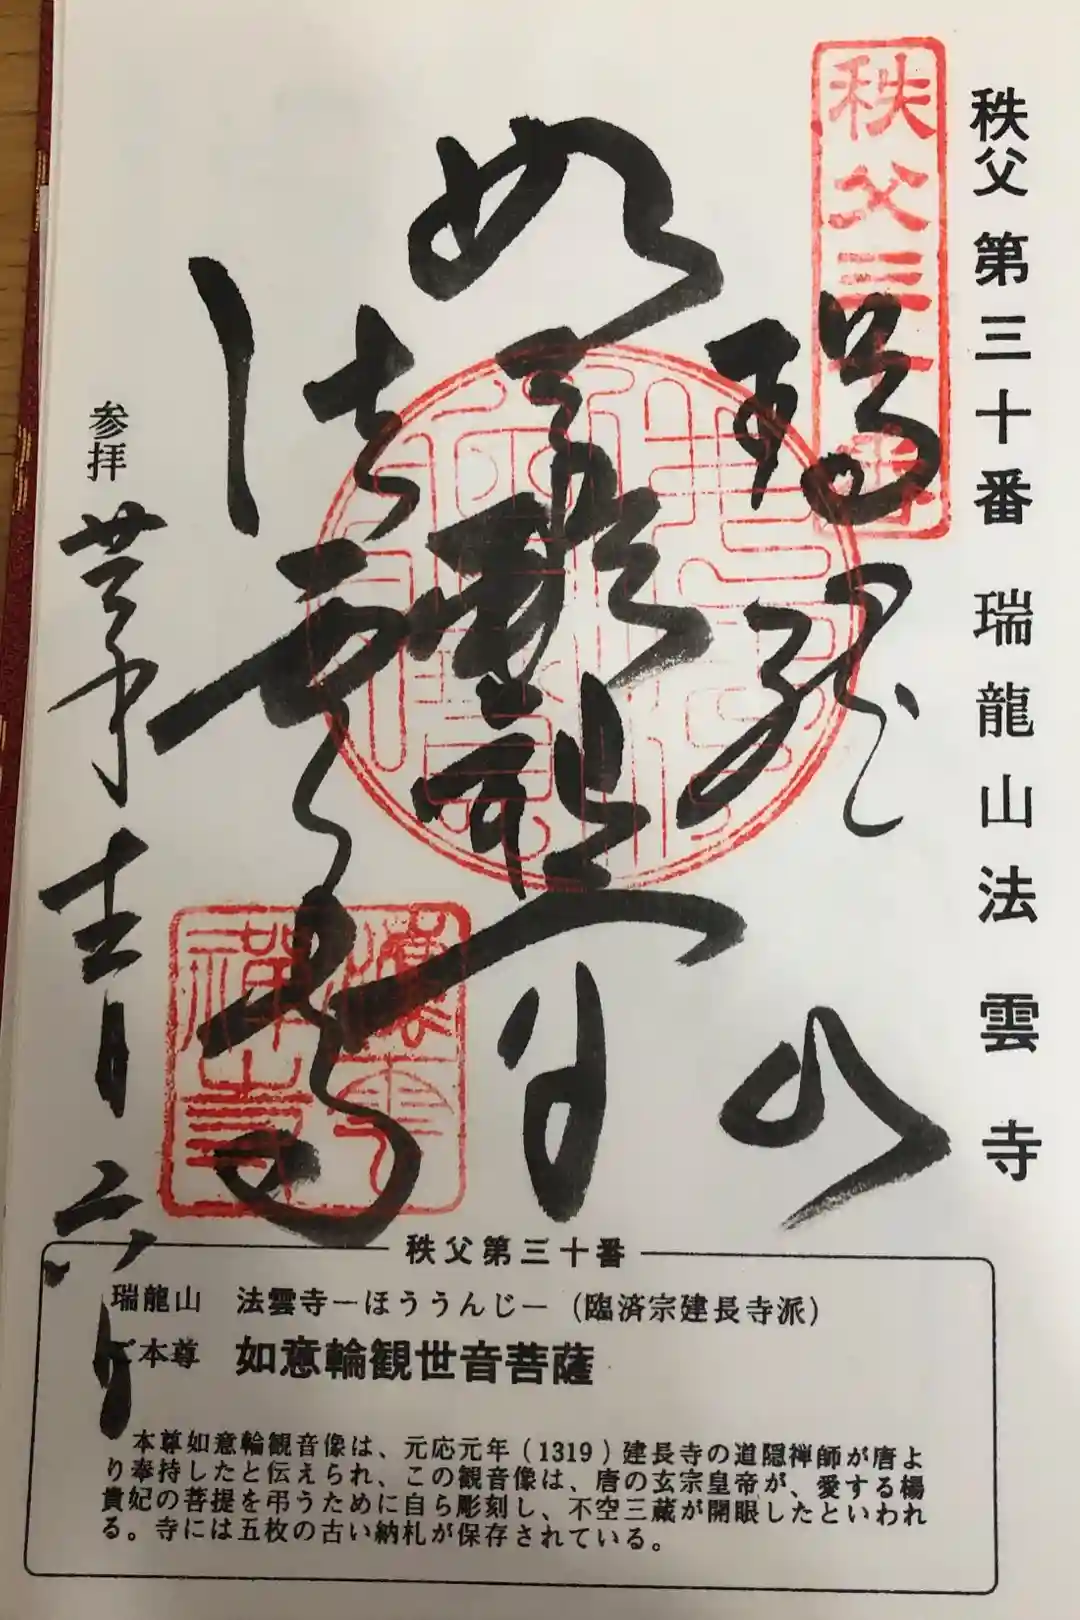 秩父第三十番 瑞龍山法雲寺
秩父三十番
瑞龍山
如意輪堂
法雲寺
参拝 廿年十一月六日
秩父第三十番
瑞龍山 法雲寺ーほううんじー(臨済宗建長寺派)
ご本尊 如意輪観世音菩薩
本尊如意輪観音像は、元応元年(1319)建長寺の道隠禅師が唐よ
り奉持したと伝えられ、この観音像は、唐の玄宗皇帝が、愛する楊
貴妃の菩提を弔うために自ら彫刻し、不空三蔵が開眼したといわれ
る。寺には五枚の古い納札が保存されている。